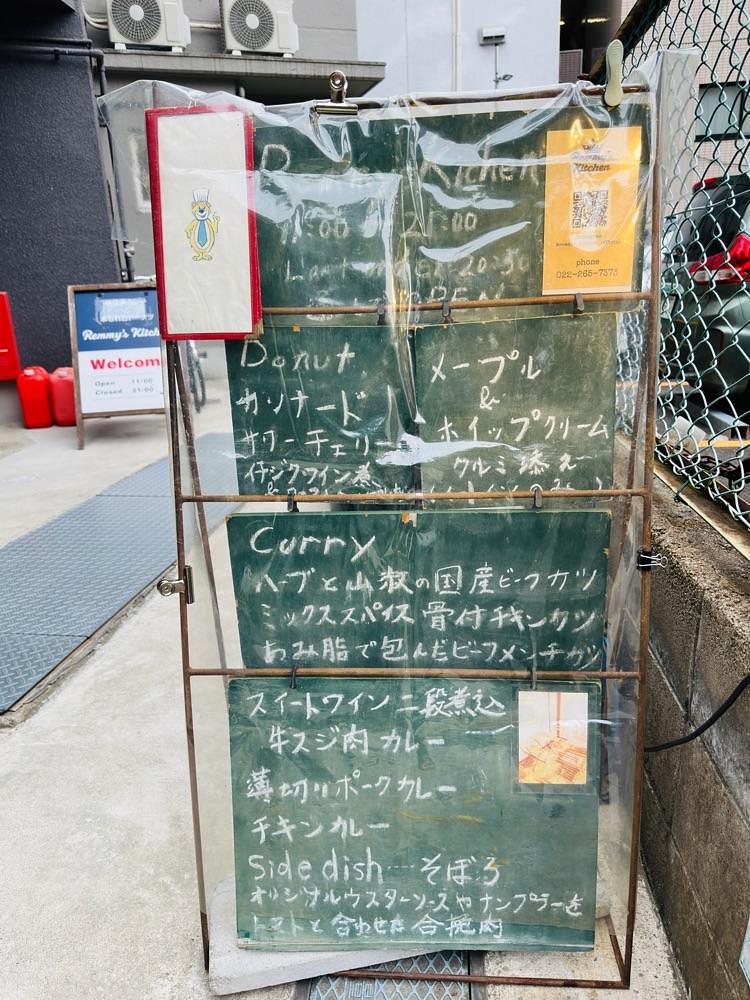 Kitchen
11:00 21:00
20:30
OPEN
Remmy's
Kitchen
phone
022-265-7373
Remmy's Kitch
Welcom
Open 11:00
Closed 21:00
Donut
カソナード
サワーチェリー
イチジクワイン煮
メープル
&
ホイップクリーム
クルミ添え
Curry
ハーブと山椒の国産ビーフカツ
ミックススパイス 骨付チキンカツ
あみ脂で包んだビーフメンチカツ
スイートワイン二段煮込
牛スジ肉カレー
薄切りポークカレー
チキンカレー
Side dish…そぼろ
オリジナルウスターソースやナンプラーを
トマトと合わせた合挽肉